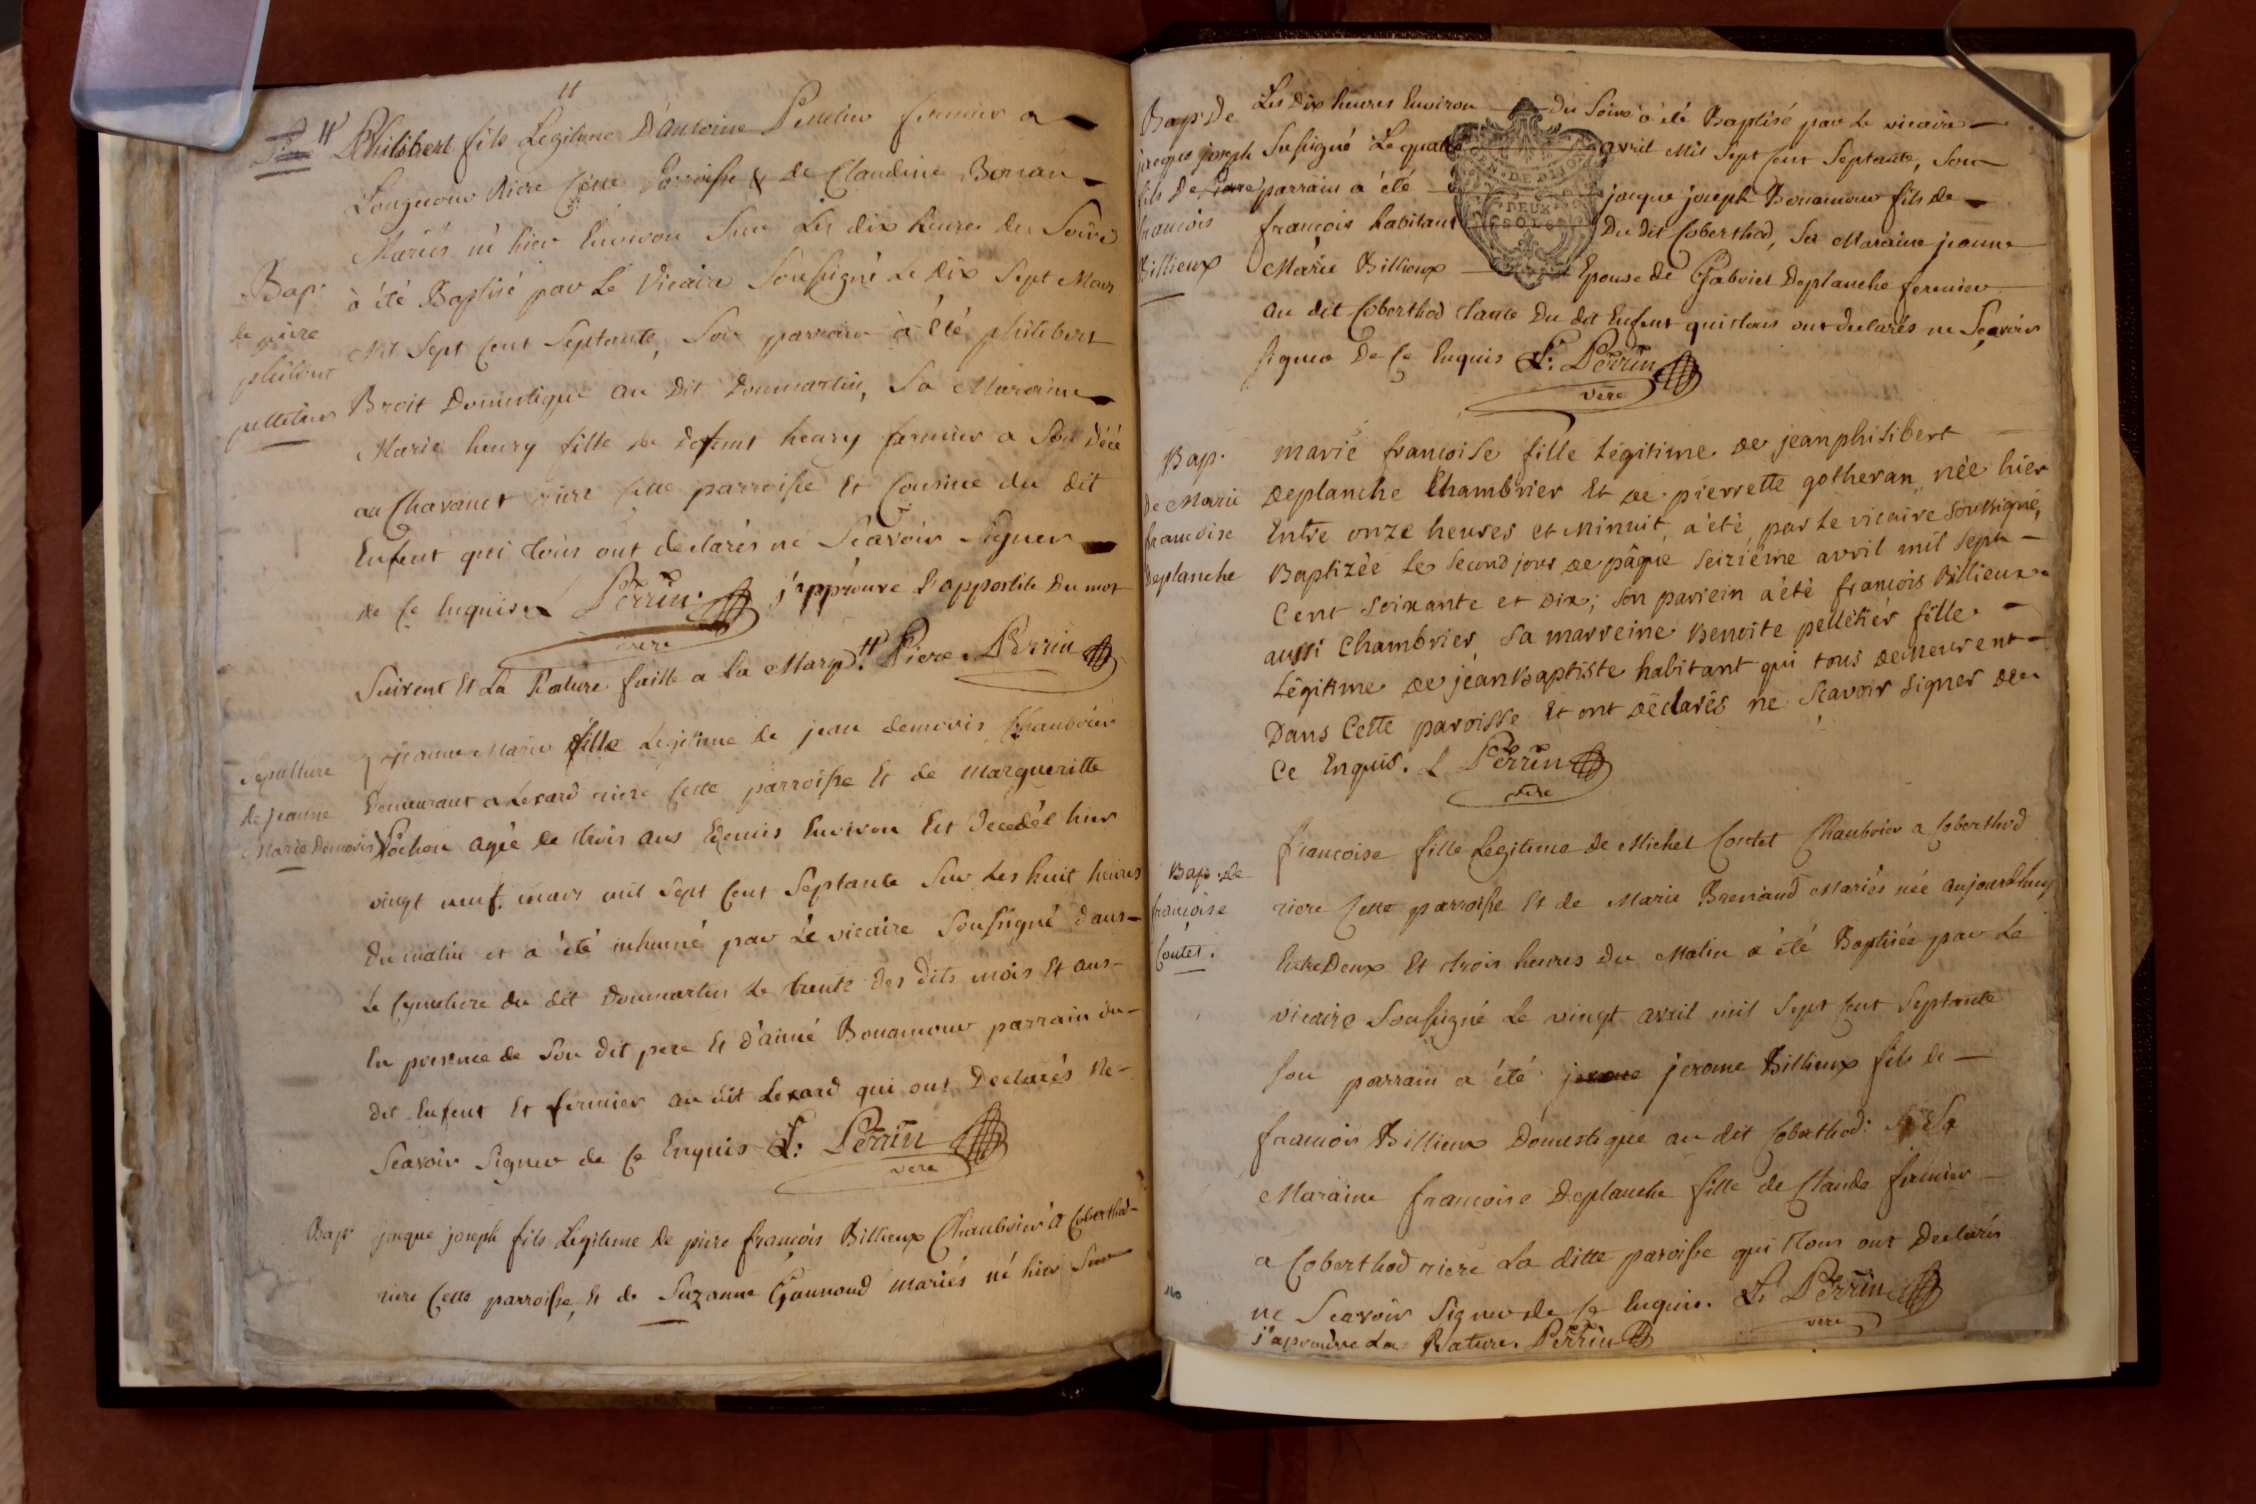 Bap.
de pierre
philibert
pelletier
Philibert fils Legitime D'antoine Peletier fermier a
Longueour Riere Cette Parroisse & de Claudine Bonan
Mariés né hier Environ Sur Les dix heures du Soir
à été Baptisé par Le Vicaire Soussigné Le Dix Sept Mars
Mil Sept Cent Septante, Son parrain à été philibert
Broit Domestique au Dit Dommartin, Sa Maraine
Marie henry fille de defeunt henry fermier a Son Décé
au Chavanet riere Cette parroisse Et Cousine du dit
Enfent qui tous ont declarés ne Scavoir Signer
de Ce Enquis Perrin j'approuve L'appostile Du mot
vere
Suivent Et La Rature faitte a La Marge. Piere. Perrin
Sepulture
de jeanne
Marie Demoris
jeanne Marie fille Legitime de jean demoris Chambrier
Demeurant a Lexard riere Cette parroisse Et de Margueritte
Pochon agée de trois ans Edemis Environ Est Decedée hier
vingt neuf mars mil Sept Cent Septante Sur Les huit heures
Du matin et a été inhumé par Le vicaire Soussigné Dans
Le Cymetiere du dit Dommartin Le trente Des Dits mois Et ans
En presence de Son dit pere Et d'aimé Bonamour parrain du
Dit Enfent Et fermier au dit Lexard qui ont Declarés Ne
Scavoir Signer de Ce Enquis L: Perrin
vere
Bap.
jacque joseph fils Legitime de piere françois Billieux Chambrier a Coberthod
riere Cette parroisse, Et de Suzanne Gaunond mariés né hier Sur
Bap. De
jacque joseph
fils De Piere
francois
Billieux
Les Dix heures Environ Du Soir a été Baptisé par Le vicaire
Susigné Le quatre avril Mil Sept Cent Septante, Son
parrain a été jacque joseph Bonamour fils de
francois habitant Du Dit Coberthod, Sa Maraine jeanne
Marie Billieux Epouse de Gabriel Deplanche fermier
DE DIJON
DEUX
SOLS
au dit Coberthod tante Du dit Enfent qui tous ont declarés ne Scavoir
Signer De Ce Enquis L: Perrin
vere
Bap.
De Marie
francoise
Deplanche
marie francoise fille Légitime de jean philibert
deplanche Chambrier Et de pierrette gotheran née hier
Entre onze heures et Minuit, a été par Le vicaire soussigné,
Baptizée Le Second jour de pâque Seizième avril mil Sept
Cent Soixante et Dix; Son parrein a été francois Billieux
aussi Chambrier, sa marreine Benoite pelletier fille
Légitime de jean Baptiste habitant qui tous demeurent
Dans Cette paroisse Et ont déclarés ne Scavoir Signer de
Ce Enquis. L Perrin
vere
Bap. De
francoise
Coutet.
francoise fille Legitime De Michel Coutet Chambrier a Coberthod
riere Cette parroisse Et de Marie Brenaud Mariés née aujourdhuy
Entre Deux Et trois heures Du Matin a été Baptisée par Le
vicaire Soussigné Le vingt avril mil Sept Cent Septante
Son parrain a été jerome Billieux fils de
francois Billieux Domestique au dit Coberthod Sa
Maraine francoise Deplanche fille de Claude fermier
a Coberthod riere La ditte paroisse qui tous ont Declarés
ne Scavoir Signer de Ce Enquis. L: Perrin
vere
j'aprouve La Rature. Perrin